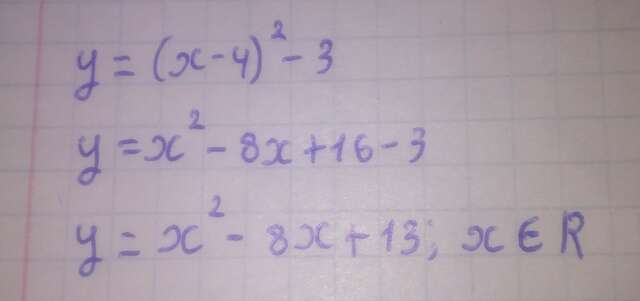 y = (x - 4)² - 3
y = x² - 8x + 16 - 3
y = x² - 8x + 13; x ∈ R